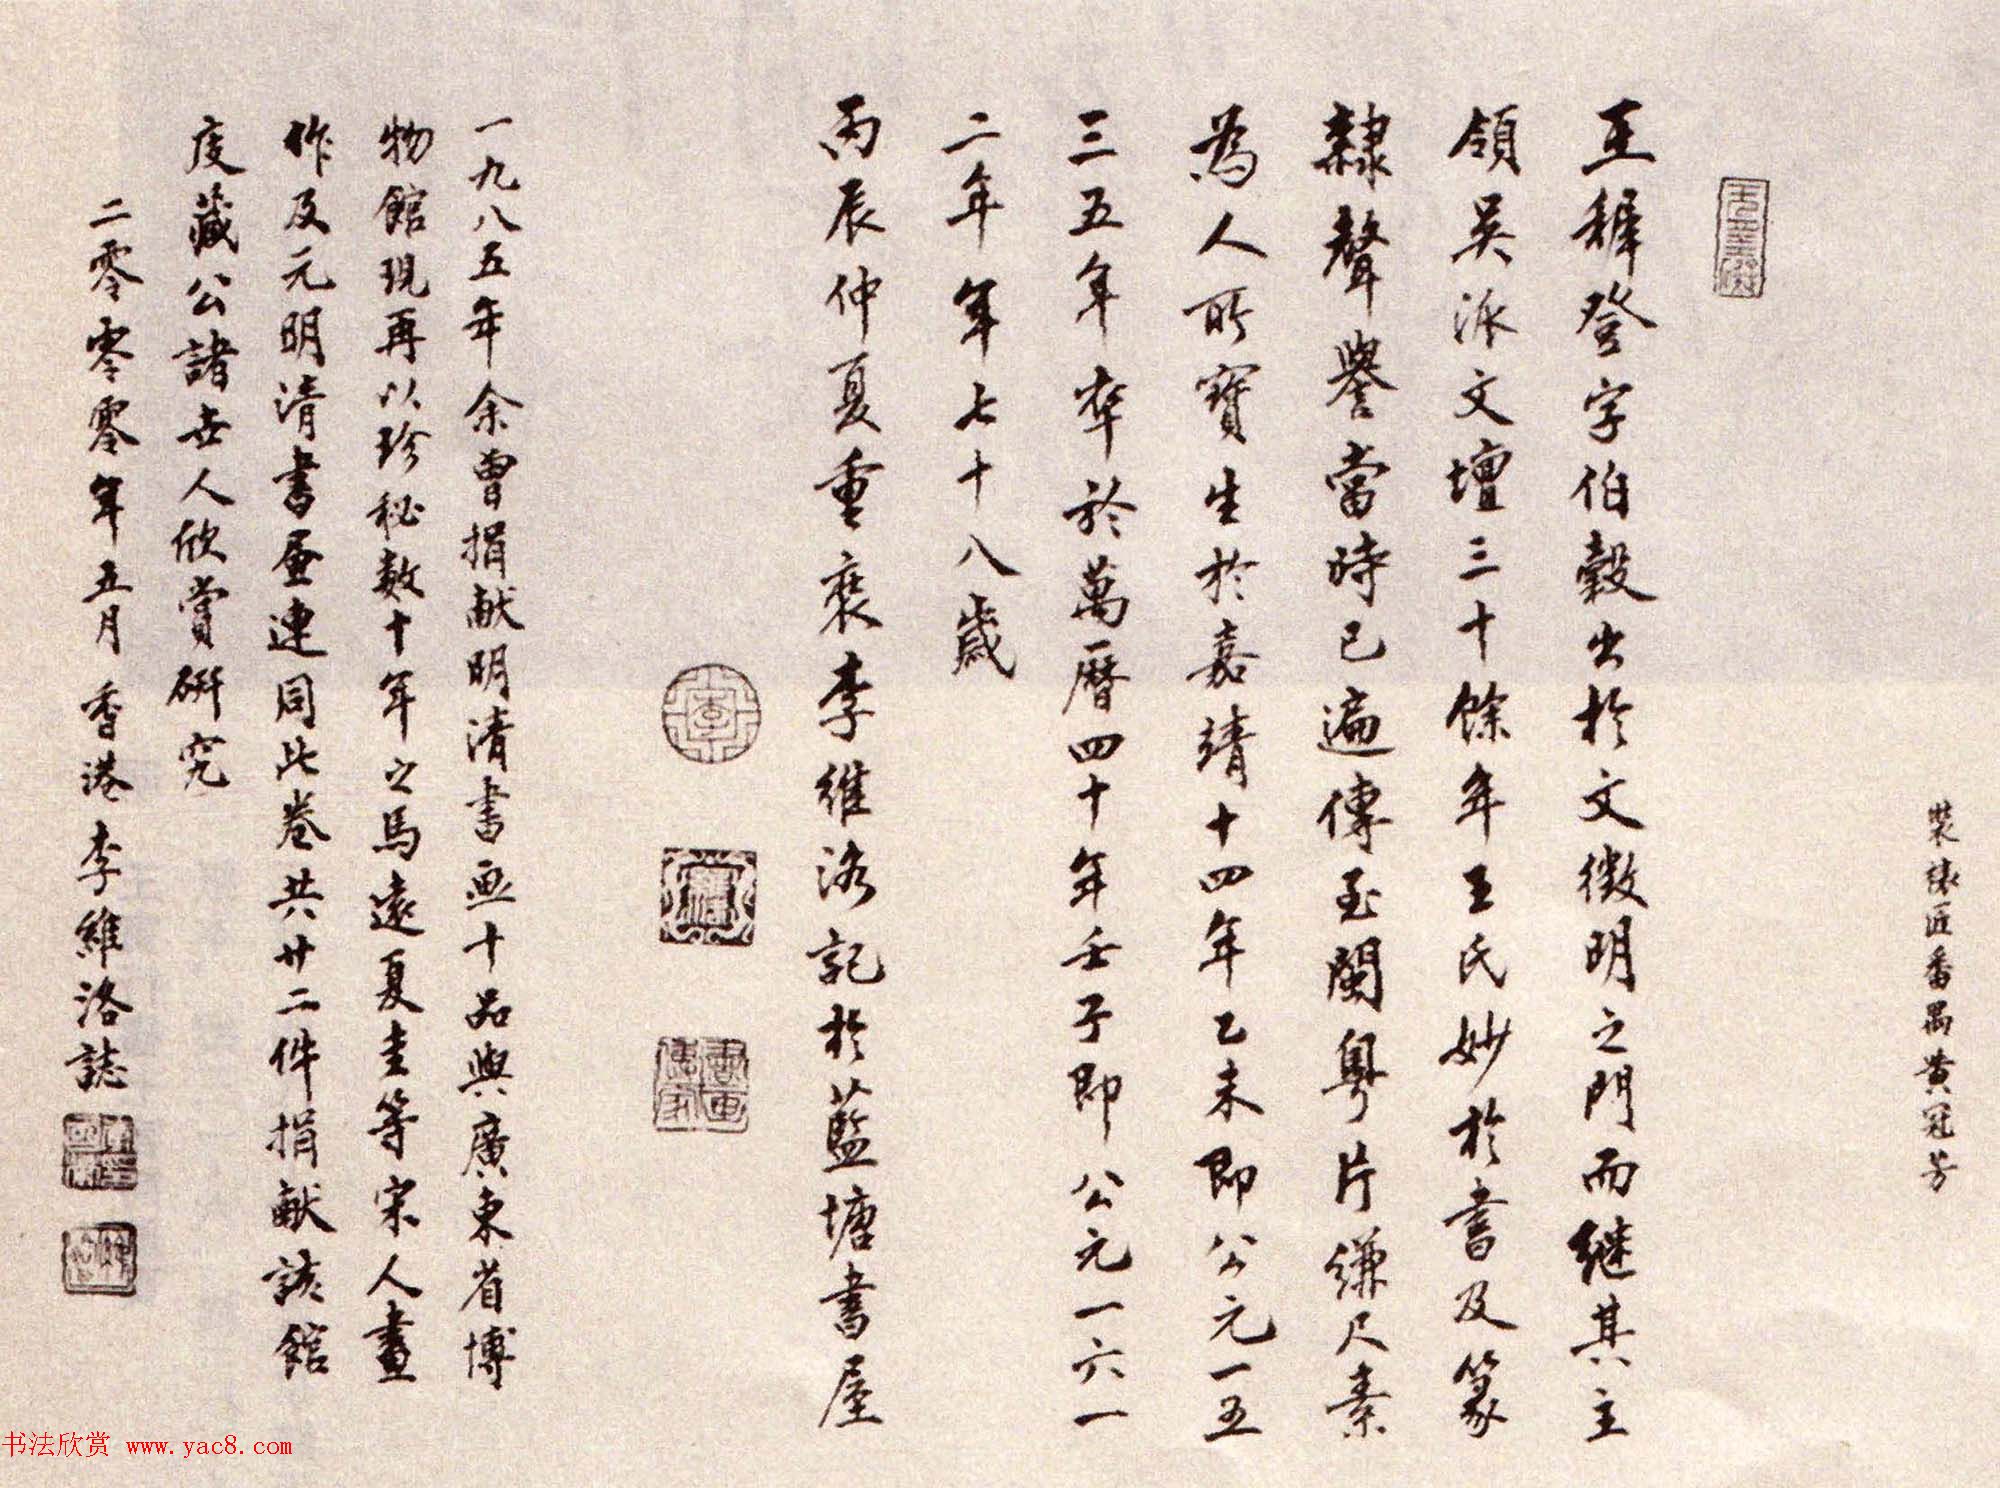 裝裱匠番禺黄冠芳
王穉登字伯穀出於文徵明之門而继其主
領吴派文壇三十餘年王氏妙於書及篆
隸聲譽當時已遍傳至閩粤片縑尺素
為人所寳生於嘉靖十四年乙未即公元一五
三五年卒於萬曆四十年壬子即公元一六一
二年年七十八歲
丙辰仲夏重裝李維洛記於藍塘書屋
一九八五年余曾捐献明清書画十品與廣東省博
物館現再以珍秘数十年之馬遠夏圭等宋人畫
作及元明清書画連同此卷共廿二件捐献該館
庋藏公諸世人欣賞研究
二零零零年五月香港李維洛誌
书法欣赏 www.yac8.com